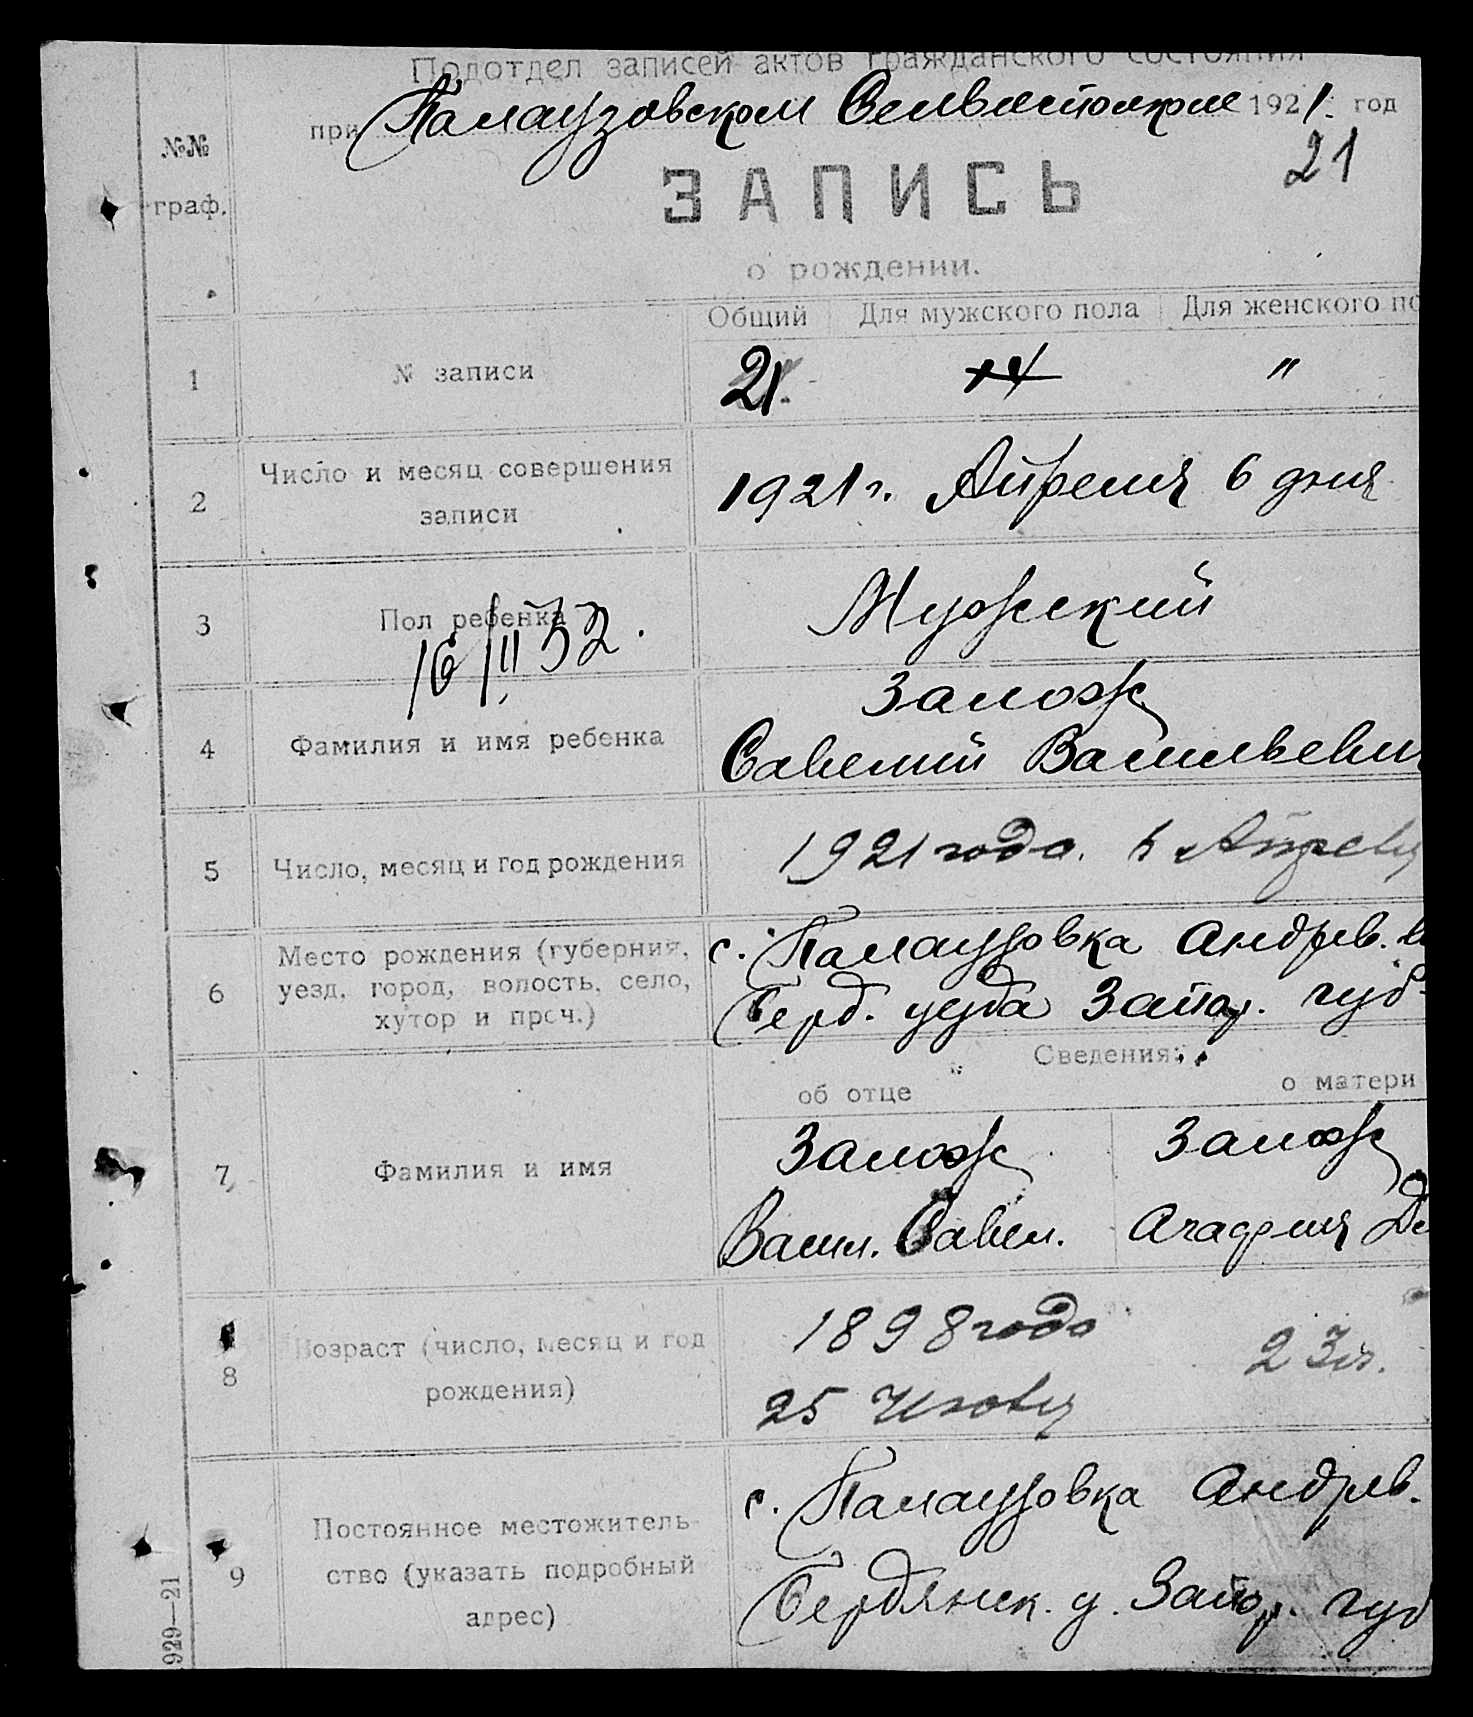 Подотдел записей актов гражданского состояния
при Палаузовском 1921. год
21
№№ граф.
ЗАПИСЬ
о рождении.
Общий Для мужского пола Для женского по
1 № записи 21. "
2 Число и месяц совершения записи 1921 г. Апреля 6 дня
3 Пол ребенка Мужский
16/III 52.
4 Фамилия и имя ребенка Залож
Савелий Васильевич
5 Число, месяц и год рождения 1921 года. Апреля
6 Место рождения (губерния, уезд, город, волость, село, хутор и проч.)
с. Палаузовка Андрев. в
Берд. уезда Запор. губ
Сведения:
об отце о матери
7 Фамилия и имя
Залож Залож
Васил. Савел. Агафия Де
8 Возраст (число, месяц и год рождения)
1898 года 23 г.
25 Июля
9 Постоянное местожительство (указать подробный адрес)
с. Палаузовка Андрев.
Бердянск. у. Запор. губ
1929—21